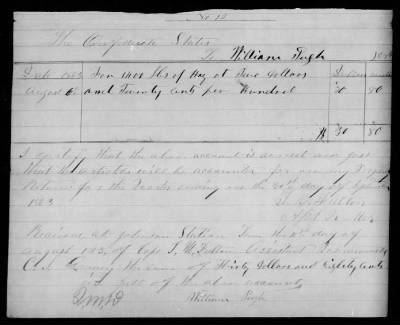 No 12
The Confederate States
To William Pugh Dr
Date 1863 For 1400 lbs of Hay at Two dollars Dollars cents
August 6th and Twenty cents per Hundred 30 80
$ 30 80
I certify that the above account is correct and just
that the articles will be accounted for on my
Return for the Quarter ending on the 30th day of September
1863
Received at Johnson Station Tenn the day of
August 1863, of Capt Assistant
the sum of Thirty Dollars and Eighty cents
in full of the above account
William Pugh